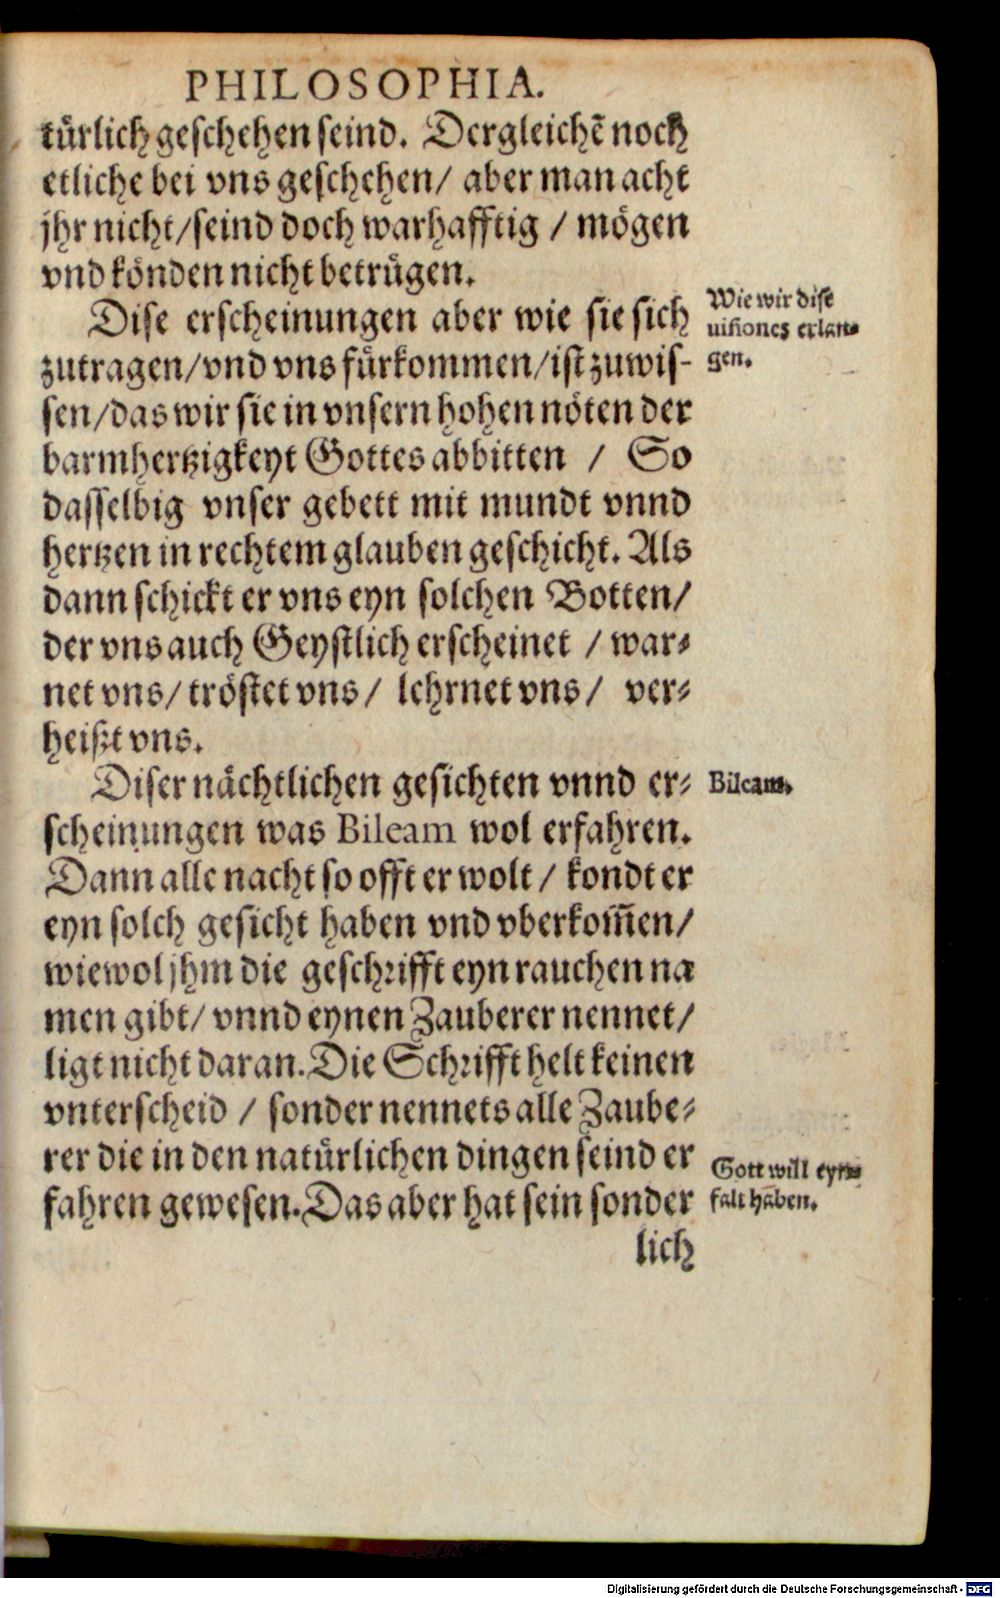 PHILOSOPHIA.
tuͤrlich geschehen seind. Dergleichē noch
etliche bei vns geschehen/ aber man acht
jhr nicht/seind doch warhafftig / moͤgen
vnd koͤnden nicht betruͤgen.
Dise erscheinungen aber wie sie sich
zutragen/vnd vns fuͤrkommen/ist zuwis-
sen/das wir sie in vnsern hohen noͤten der
barmhertzigkeyt Gottes abbitten / So
dasselbig vnser gebett mit mundt vnnd
hertzen in rechtem glauben geschicht. Als
dann schickt er vns eyn solchen Botten/
der vns auch Geystlich erscheinet / war⸗
net vns/ troͤstet vns/ lehrnet vns/ ver⸗
heißt vns.
Diser naͤchtlichen gesichten vnnd er⸗
scheinungen was Bileam wol erfahren.
Dann alle nacht so offt er wolt / kondt er
eyn solch gesicht haben vnd vberkom̄en/
wiewol jhm die geschrifft eyn rauchen na
men gibt/ vnnd eynen Zauberer nennet/
ligt nicht daran. Die Schrifft helt keinen
vnterscheid / sonder nennets alle Zaube⸗
rer die in den natuͤrlichen dingen seind er
fahren gewesen. Das aber hat sein sonder
lich
Wie wir dise
uisiones erlan⸗
gen.
Bileam.
Gott will eyn⸗
falt haben.
Digitalisierung gefördert durch die Deutsche Forschungsgemeinschaft - DFG